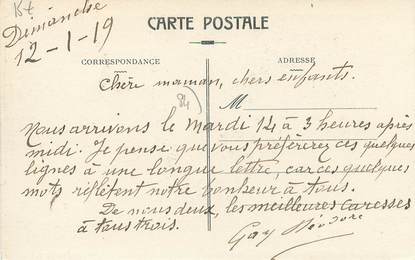 CARTE POSTALE
Dimanche
12-1-19
CORRESPONDANCE
ADRESSE
Chère maman, chers enfants.
M
84
Nous arrivons le Mardi 14 à 3 heures après
midi. Je pense que vous préférirez ces quelques
lignes à une longue lettre, car ces quelques
mots reflêtent notre bonheur à tous.
De nous deux, les meilleures caresses
à tous trois.
Gay Théodore